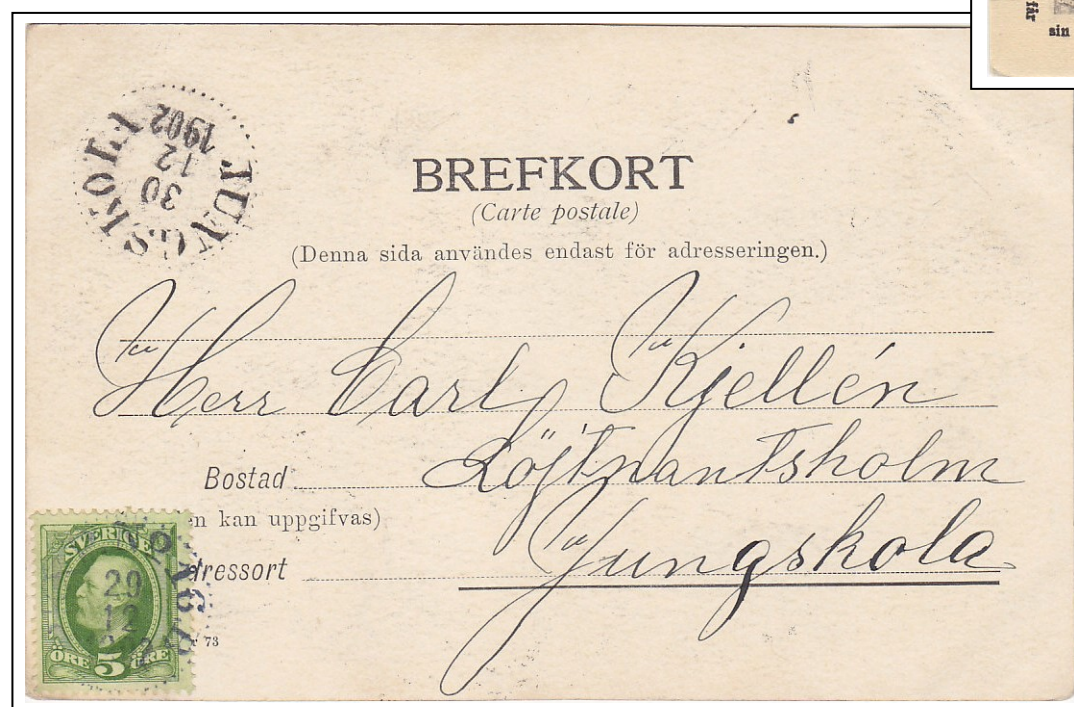 får
sin
JUNGSKOLA
30
12
1902
BREFKORT
(Carte postale)
(Denna sida användes endast för adresseringen.)
Herr Carl Kjellén
Bostad Löjtnantsholm
en kan uppgifvas)
dressort Jungskola
SVERIGE
29
12
ÖRE 5 ÖRE
73